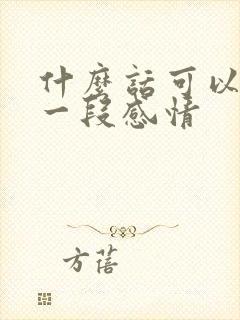 什麼話可以
一段感情
方蓓